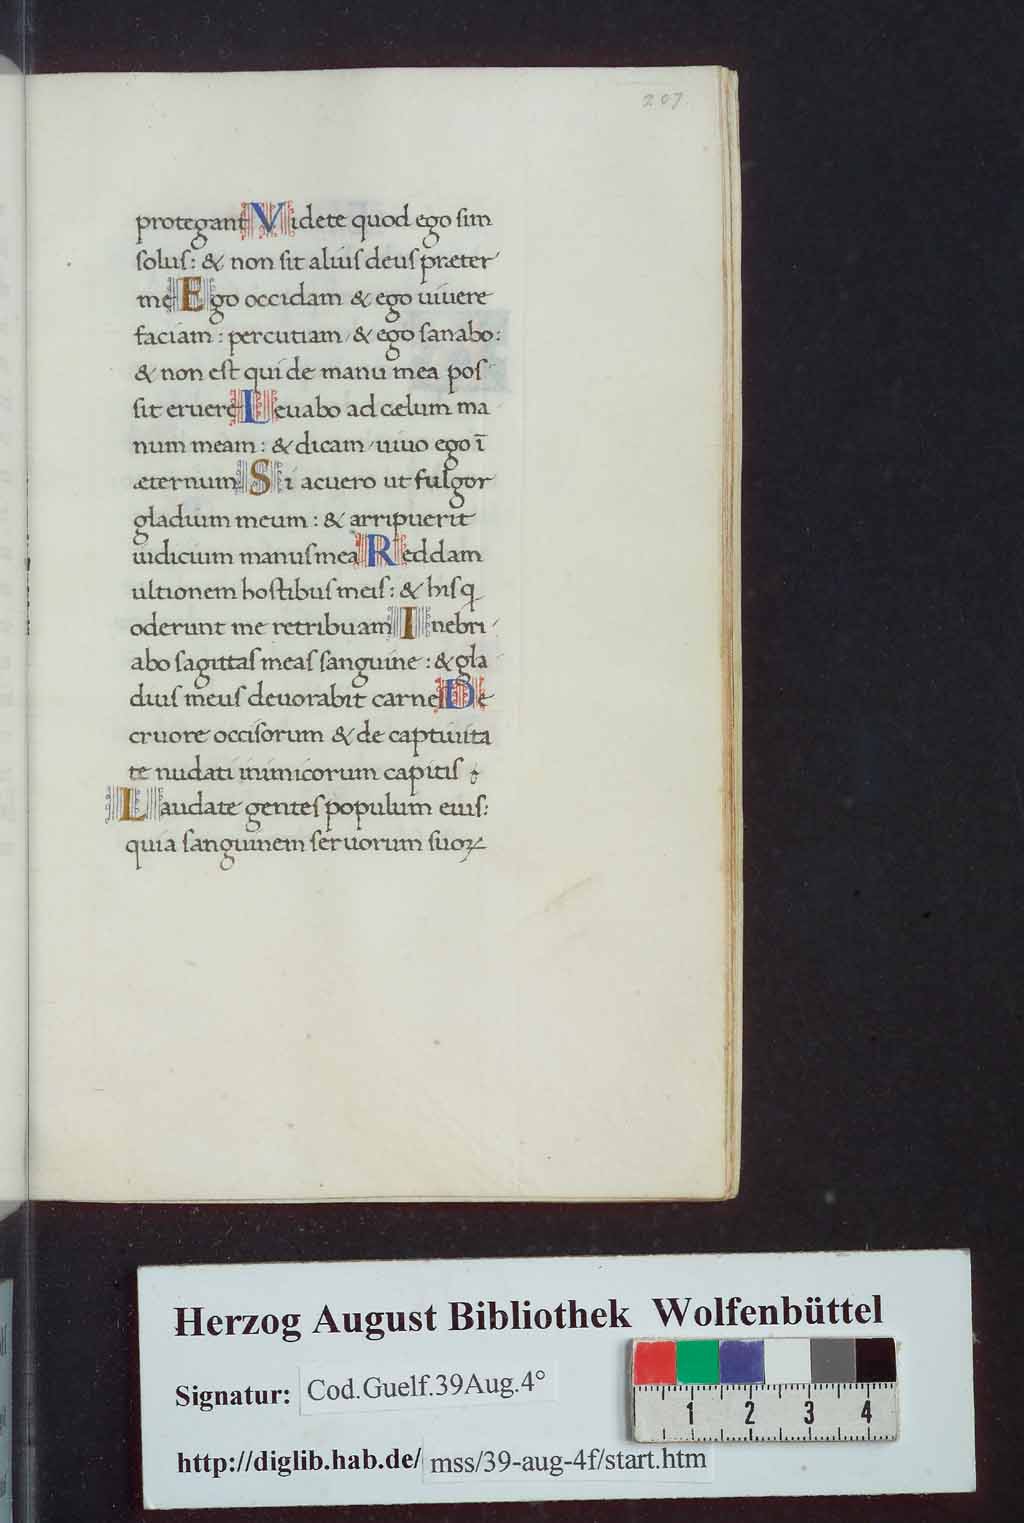 207
protegant Videte quod ego ſim
ſoluſ: & non ſit aliuſ deuſ præter
me Ego occidam & ego uiuere
faciam: percutiam / & ego ſanabo:
& non eſt qui de manu mea poſ
ſit eruere Leuabo ad cælum ma
num meam: & dicam / uiuo ego ī
æternum Si acuero ut fulgor
gladium meum: & arripuerit
iudicium manuſ mea Reddam
ultionem hoſtibuſ meiſ: & hiſ q
oderunt me retribuam Inebri
abo ſagittaſ meaſ ſanguine: & gla
diuſ meuſ deuorabit carneſ De
cruore occiſorum & de captiuita
te nudati inimicorum capitiſ
Laudate genteſ populum eiuſ:
quia ſanguinem ſeruorum ſuoꝝ
Herzog August Bibliothek Wolfenbüttel
Signatur: Cod.Guelf.39Aug.4°
1 2 3 4
http://diglib.hab.de/mss/39-aug-4f/start.htm